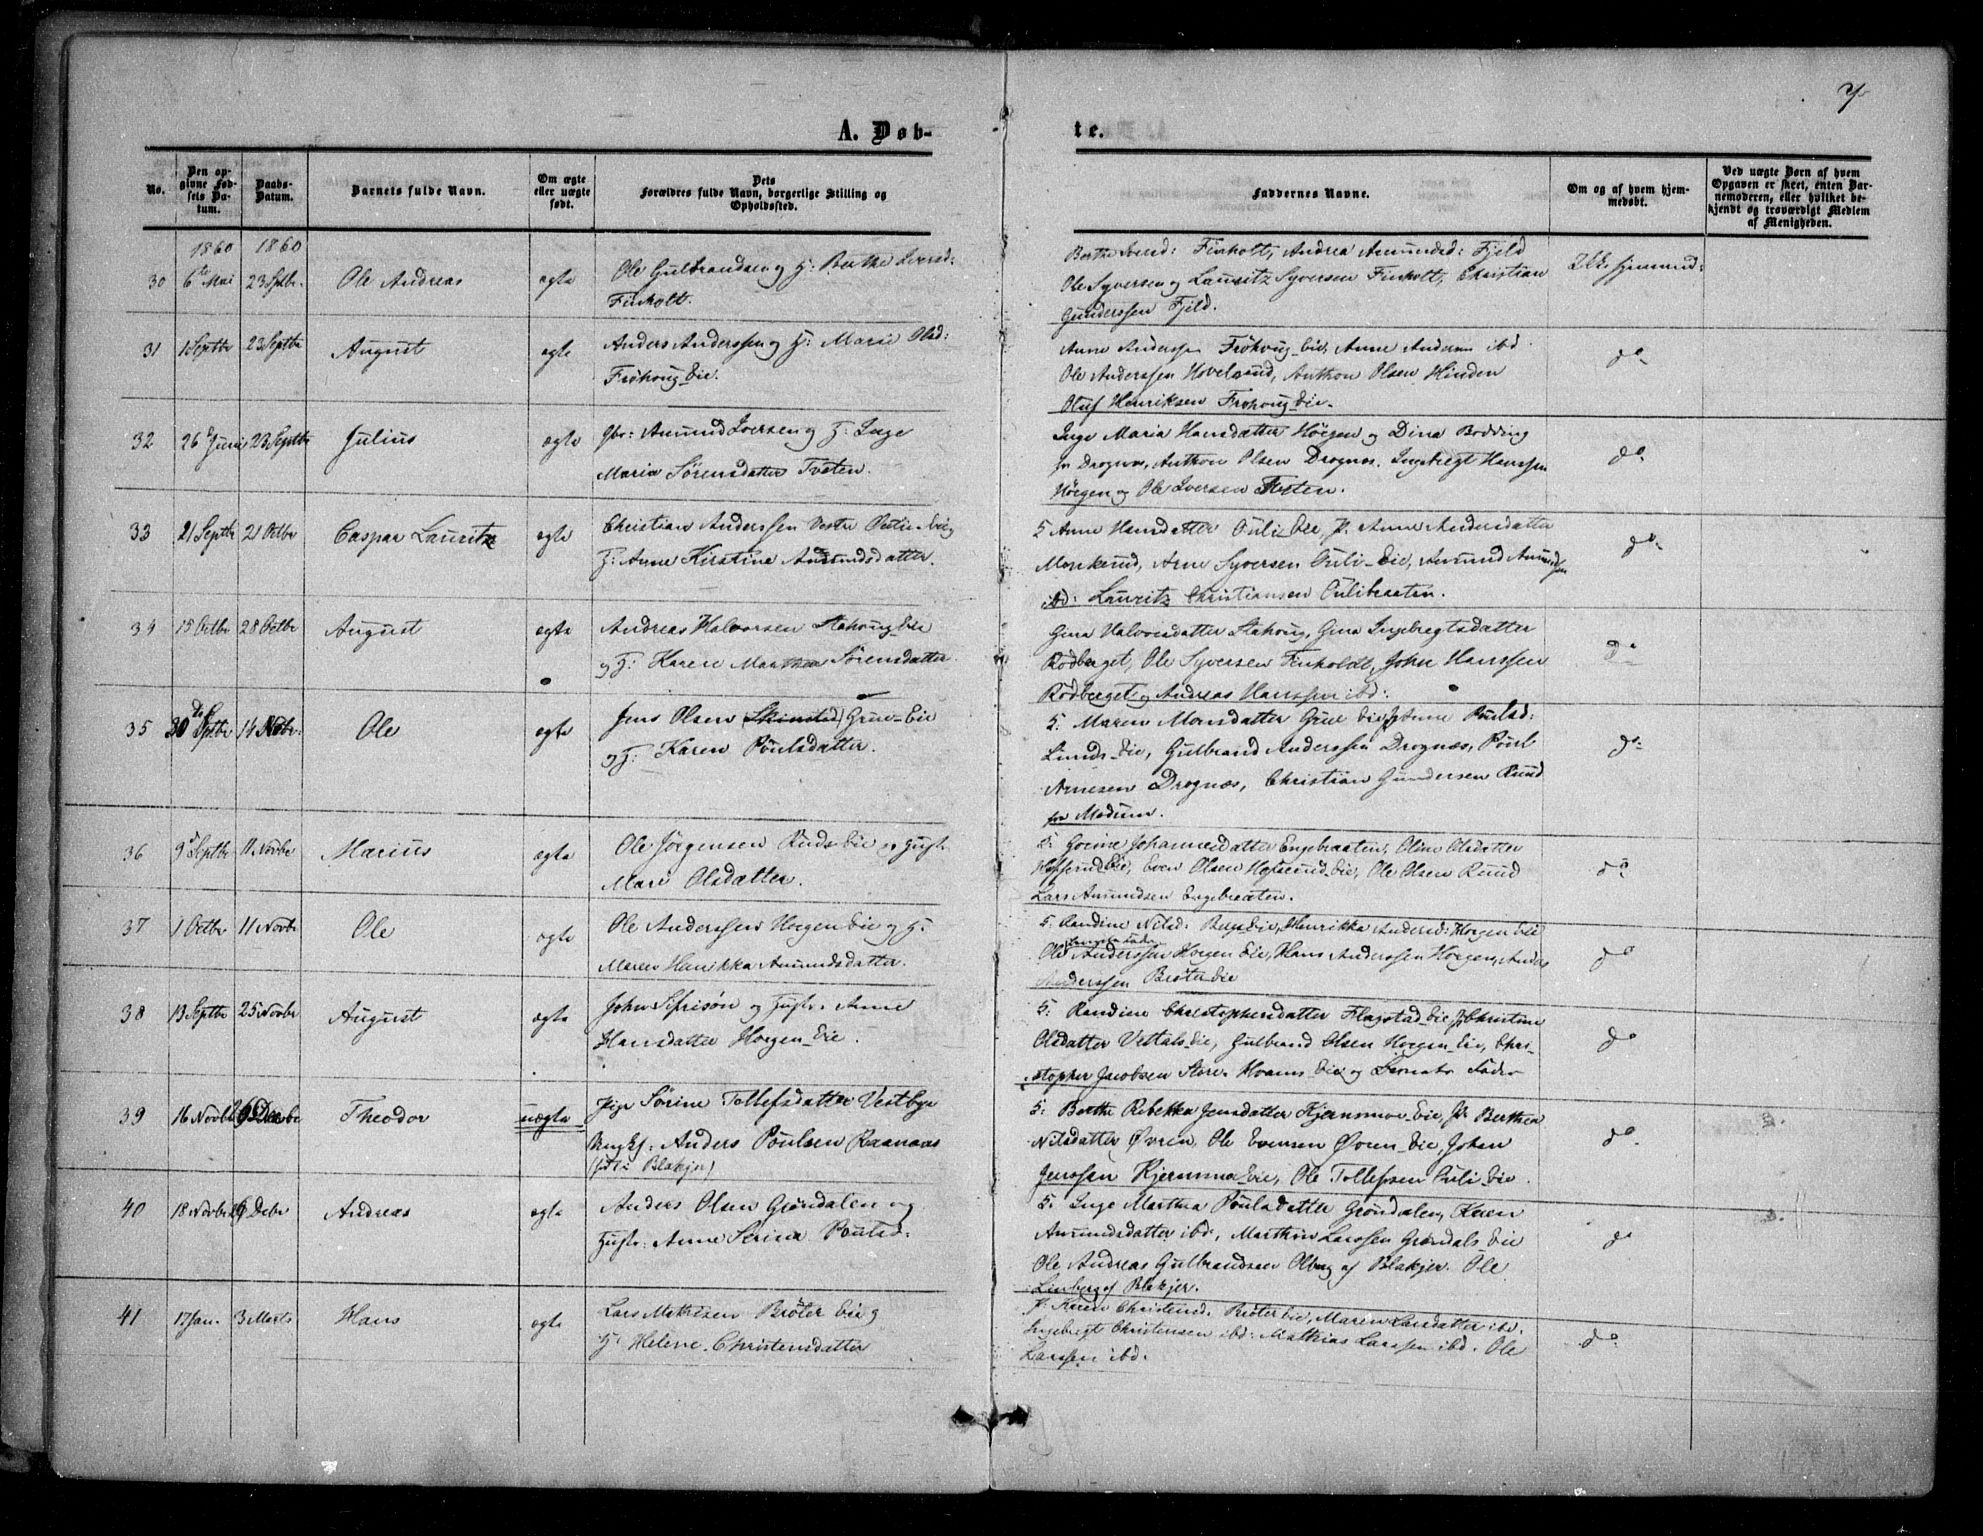 7
A. Døb-
te.
No.
Den op-
givne Fød-
sels Da-
tum.
Daabs-
Datum.
Barnets fulde Navn.
Om ægte
eller uægte
født.
Dets
Forældres fulde Navn, borgerlige Stilling og
Opholdssted.
Faddernes Navne.
Om og af hvem hjem-
medøbt.
Ved uægte Børn af hvem
Opgaven er skeet, enten Bar-
nemoderen, eller hvilket be-
kjendt og troværdigt Medlem
af Menigheden.
1860 1860
30 6te Mai 23 Septbr. Ole Andreas ægte Ole Gulbrandsen og H: Berthe Iversd:
Finholt.
Finholt, Andrea Amundsd: Fjeld
Ole Syversen og Lauritz Syversen Finholt, Christian
Gunderssen Fjeld.
31 1 Septbr 23 Septbr August ægte Anders Anderssen og H: Marie Olsd:
Frøhoug-Eie.
Anne Anderssen Frøhoug-Eie, Anne Andersen ibd
Ole Anderssen Hovelsrud, Anthon Olsen Hinden
Oluf Henriksen Frøhoug-Eie.
do
32 26 Juni 23 Septbr Julius ægte Gbr: Amund Iversen og H: Inge
Maria Sørensdatter Tveten.
Inge Maria Hansdatter Høegen og Dina Bodding
fr Drognæs, Anthon Olsen Drognes, Ingebregt Hanssen
Høegen og Ole Iversen Tveten.
do
33 21 Septbr 21 Octbr Caspar Lauritz ægte Christian Anderssen Vestre Oulie-Eie og
H: Anne Kirstine Amundsdatter.
5 Anne Hansdatter Oulie-Eie, P. Anne Andersdatter
Monkerud, Arne Syversen Ouli-Eie, Amund Amundsen
ibd: Lauritz Christiansen Oulibraaten.
do
34 15 Octbr 28 Octbr August ægte Andreas Halvorsen Stahoug-Eie
og H: Karen Marthea Sørensdatter
Gina Halvorsdatter Stahoug, Gina Ingebregtsdatter
Rødberget, Ole Syversen Finholdt, John Hanssen
Rødberget og Andreas Hanssen ibd:
do
35 30 Septbr 14 Novbr. Ole ægte Jens Olsen Skinstad Grue-Eie
og H: Karen Poulsdatter.
5: Maren Monsdatter Grue Eie, P. Anne Poulsd:
Lunds-Eie, Gulbrand Anderssen Drognæs, Poul
Arnesen Drognæs, Christian Gundersen Ruud
fra Modum.
do
36 9 Septbr 11 Novbr Marius ægte Ole Jørgensen Ruds-Eie og Hust.
Mari Olsdatter.
5: Johannesdatter Engebraaten, Oline Olsdatter
Eie, Even Olsen Eie, Ole Olsen Ruud
Lars Amundsen Engebraaten.
do
37 1 Octbr 11 Novbr Ole ægte Ole Anderssen Hoegen Eie og H:
Maren Henrikka Amundsdatter.
5. Randine Nilsd: Eie, Henrikka Andersd: Hoegen Eie
Ole Anderssen Hoegen Eie, Hans Anderssen Hoegen, Anders
Anderssen Brøter Eie
do
38 13 Septbr 25 Novbr August ægte John og Hustr. Anne
Hansdatter Hoegen-Eie.
5: Randine Christophersdatter Flagstad-Eie, P. Christine
Olsdatter Vettals-Eie, Gulbrand Olsen Hoegen-Eie, Chri-
stopher Jacobsen Store-Hvams-Eie og Barnets Fader
do
39 16 Novbr Theodor uægte Pige Sørine Tollefsdatter Vestbye
Ungkf. Anders Poulsen Raanaas
Blakjer)
5: Berthe Rebekka Jensdatter Kjernsmoe-Eie, P. Berthea
Nilsdatter Øvren, Ole Evensen Øvren-Eie, Johan
Jenssen Kjernsmo-Eie, Ole Tollefssen Ouli-Eie.
do
40 18 Novbr Debr Andreas ægte Anders Olsen Grøndalen og
Hustr: Anne Serina Poulsd.
5: Inge Marthea Poulsdatter Grøndalen, Karen
Amundsdatter ibd, Marthin Larssen Grøndals Eie
Ole Andreas Gulbrandsen Olberg af Blakjer. Ole
Linberg af Blakjer.
do
41 17 Jan. 3 Marts Hans ægte Lars Mathisen Brøter Eie og
H: Helene Christensdatter
P. Karen Christensd. Brøter Eie, Maren Larsdatter ibd.
Ingebregt Christensen ibd: Mathias Larssen ibd. Ole
Larssen ibd.
do